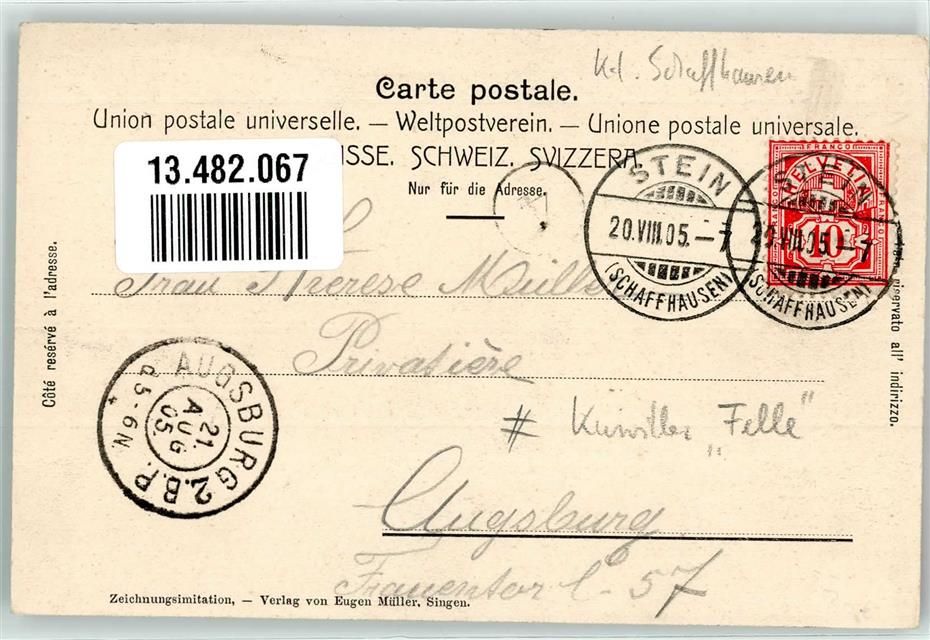 Kt. Schaffhausen
Carte postale.
Union postale universelle. — Weltpostverein. — Unione postale universale.
ISSE. SCHWEIZ. SVIZZERA.
Nur für die Adresse.
13.482.067
STEIN
20.VIII.05.–7
(SCHAFFHAUSEN)
FRANCO
HELVETIA
10
STEIN
20.VIII.05.–7
(SCHAFFHAUSEN)
Côté resérvé à l'adresse.
riservato all' indirizzo.
Frau Therese Müller
Privatière
# Künstler „Felle"
Augsburg
Frauentor C 57
AUGSBURG 2.B.P.
21.
AUG
05.
5-6 N.
Zeichnungsimitation, — Verlag von Eugen Müller, Singen.